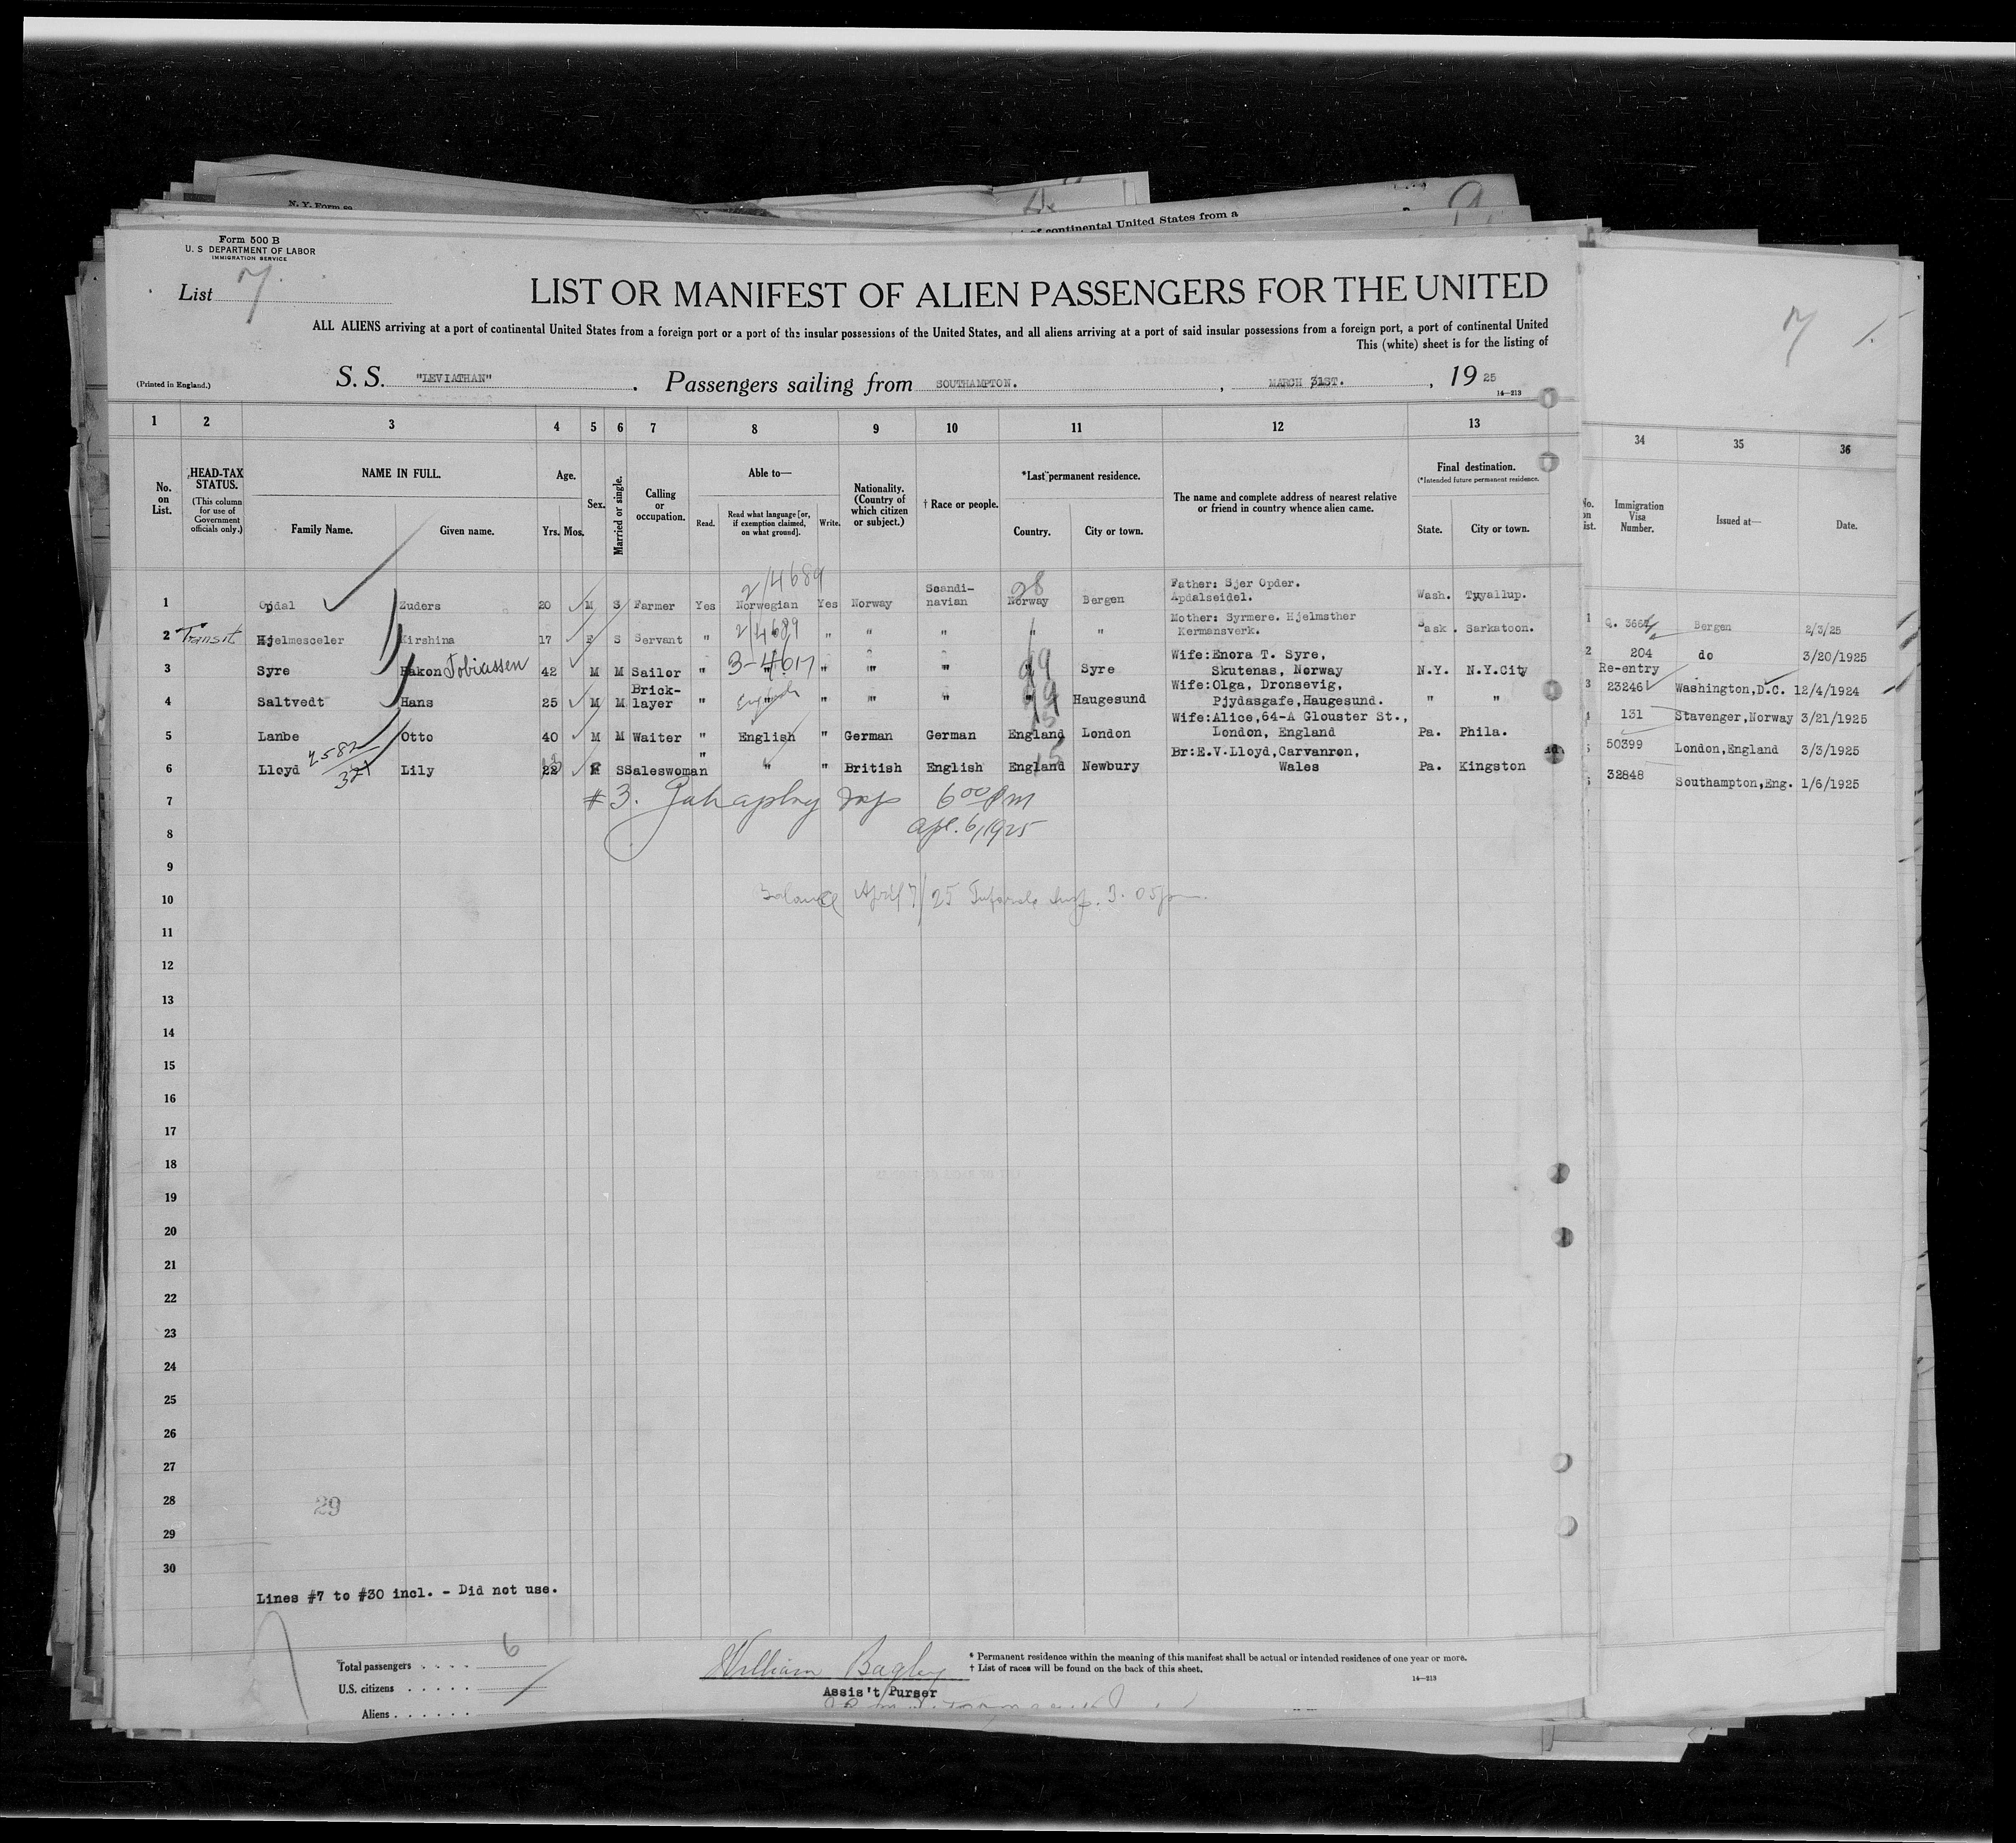 N. Y. Form 50
of continental United States from a
Form 500 B
U. S DEPARTMENT OF LABOR
IMMIGRATION SERVICE
List 7.
LIST OR MANIFEST OF ALIEN PASSENGERS FOR THE UNITED
7
ALL ALIENS arriving at a port of continental United States from a foreign port or a port of the insular possessions of the United States, and all aliens arriving at a port of said insular possessions from a foreign port, a port of continental United
This (white) sheet is for the listing of
(Printed in England.) S. S. "LEVIATHAN" . Passengers sailing from SOUTHAMPTON. , MARCH 31ST. , 19 25
14—213
1 2 3 4 5 6 7 8 9 10 11 12 13 34 35 36
No. on List. HEAD-TAX STATUS. (This column for use of Government officials only.) NAME IN FULL. Family Name. Given name. Age. Yrs. Mos. Sex. Married or single. Calling or occupation. Able to— Read. Read what language [or, if exemption claimed, on what ground]. Write. Nationality. (Country of which citizen or subject.) † Race or people. *Last permanent residence. Country. City or town. The name and complete address of nearest relative or friend in country whence alien came. Final destination. (*Intended future permanent residence. State. City or town. No. on list. Immigration Visa Number. Issued at— Date.
2/4689 28
1 Opdal Zuders 20 M S Farmer Yes Norwegian Yes Norway Scandinavian Norway Bergen Father: Sjer Opder. Apdalseidel. Wash. Tyyallup. 1 Q. 3667 Bergen 2/3/25
2 Transit Hjelmesceler Kirshina 17 F S Servant " 2/4689 " " " " " Mother: Syrmere. Hjelmsther Kermansverk. Sask. Sarkatoon. 2 204 do 3/20/1925
3 Syre Hakon Tobiassen 42 M M Sailor " 3-4017 " " " " Syre Wife:Enora T. Syre, Skutenas, Norway N.Y. N.Y.City 3 Re-entry 23246 Washington,D.C. 12/4/1924
4 Saltvedt Hans 25 M M Brick-layer " " " " " " Haugesund Wife:Olga, Dronsevig, Pjydasgafe,Haugesund. " " 131 Stavenger,Norway 3/21/1925
5 Lanbe Otto 40 M M Waiter " English " German German England London Wife:Alice,64-A Glouster St., London, England Pa. Phila. 50399 London,England 3/3/1925
6 Lloyd 2582/321 Lily 22 F S Saleswoman " " " British English England Newbury Br:E.V.Lloyd,Carvanron, Wales Pa. Kingston 32848 Southampton,Eng. 1/6/1925
7 #3. 6 00 Pm
8 Apl. 6, 1925
9
10 Balance April 7/25 Insp. 3.05 pm
11
12
13
14
15
16
17
18
19
20
21
22
23
24
25
26
27
28 29
29
30
Lines #7 to #30 incl. - Did not use.
Total passengers . . . . . 6
U.S. citizens . . . . . .
Aliens . . . . . .
William Bagley
Assis't Purser
* Permanent residence within the meaning of this manifest shall be actual or intended residence of one year or more.
† List of races will be found on the back of this sheet.
14—213